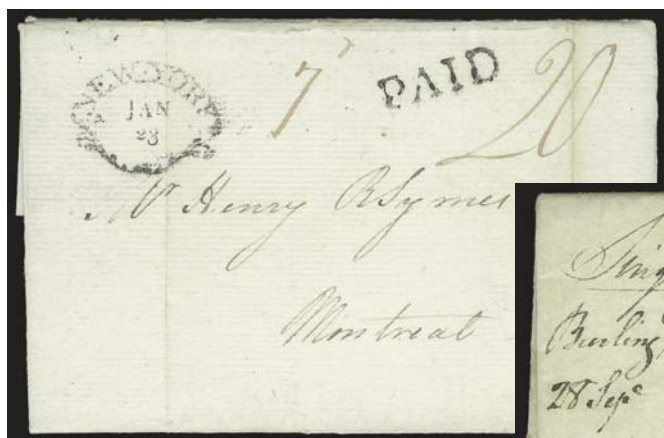 NEW-YORK
JAN
23
7
PAID
20
Mr Henry R Symes
Montreal
Sing
Burling
28 Sepr